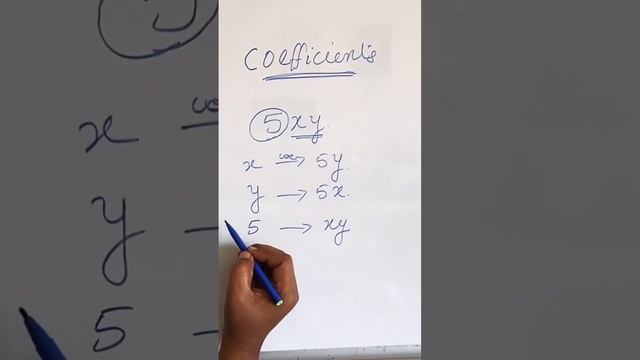 Coefficients
5 xy
x coe→ 5y
y → 5x.
5 → xy